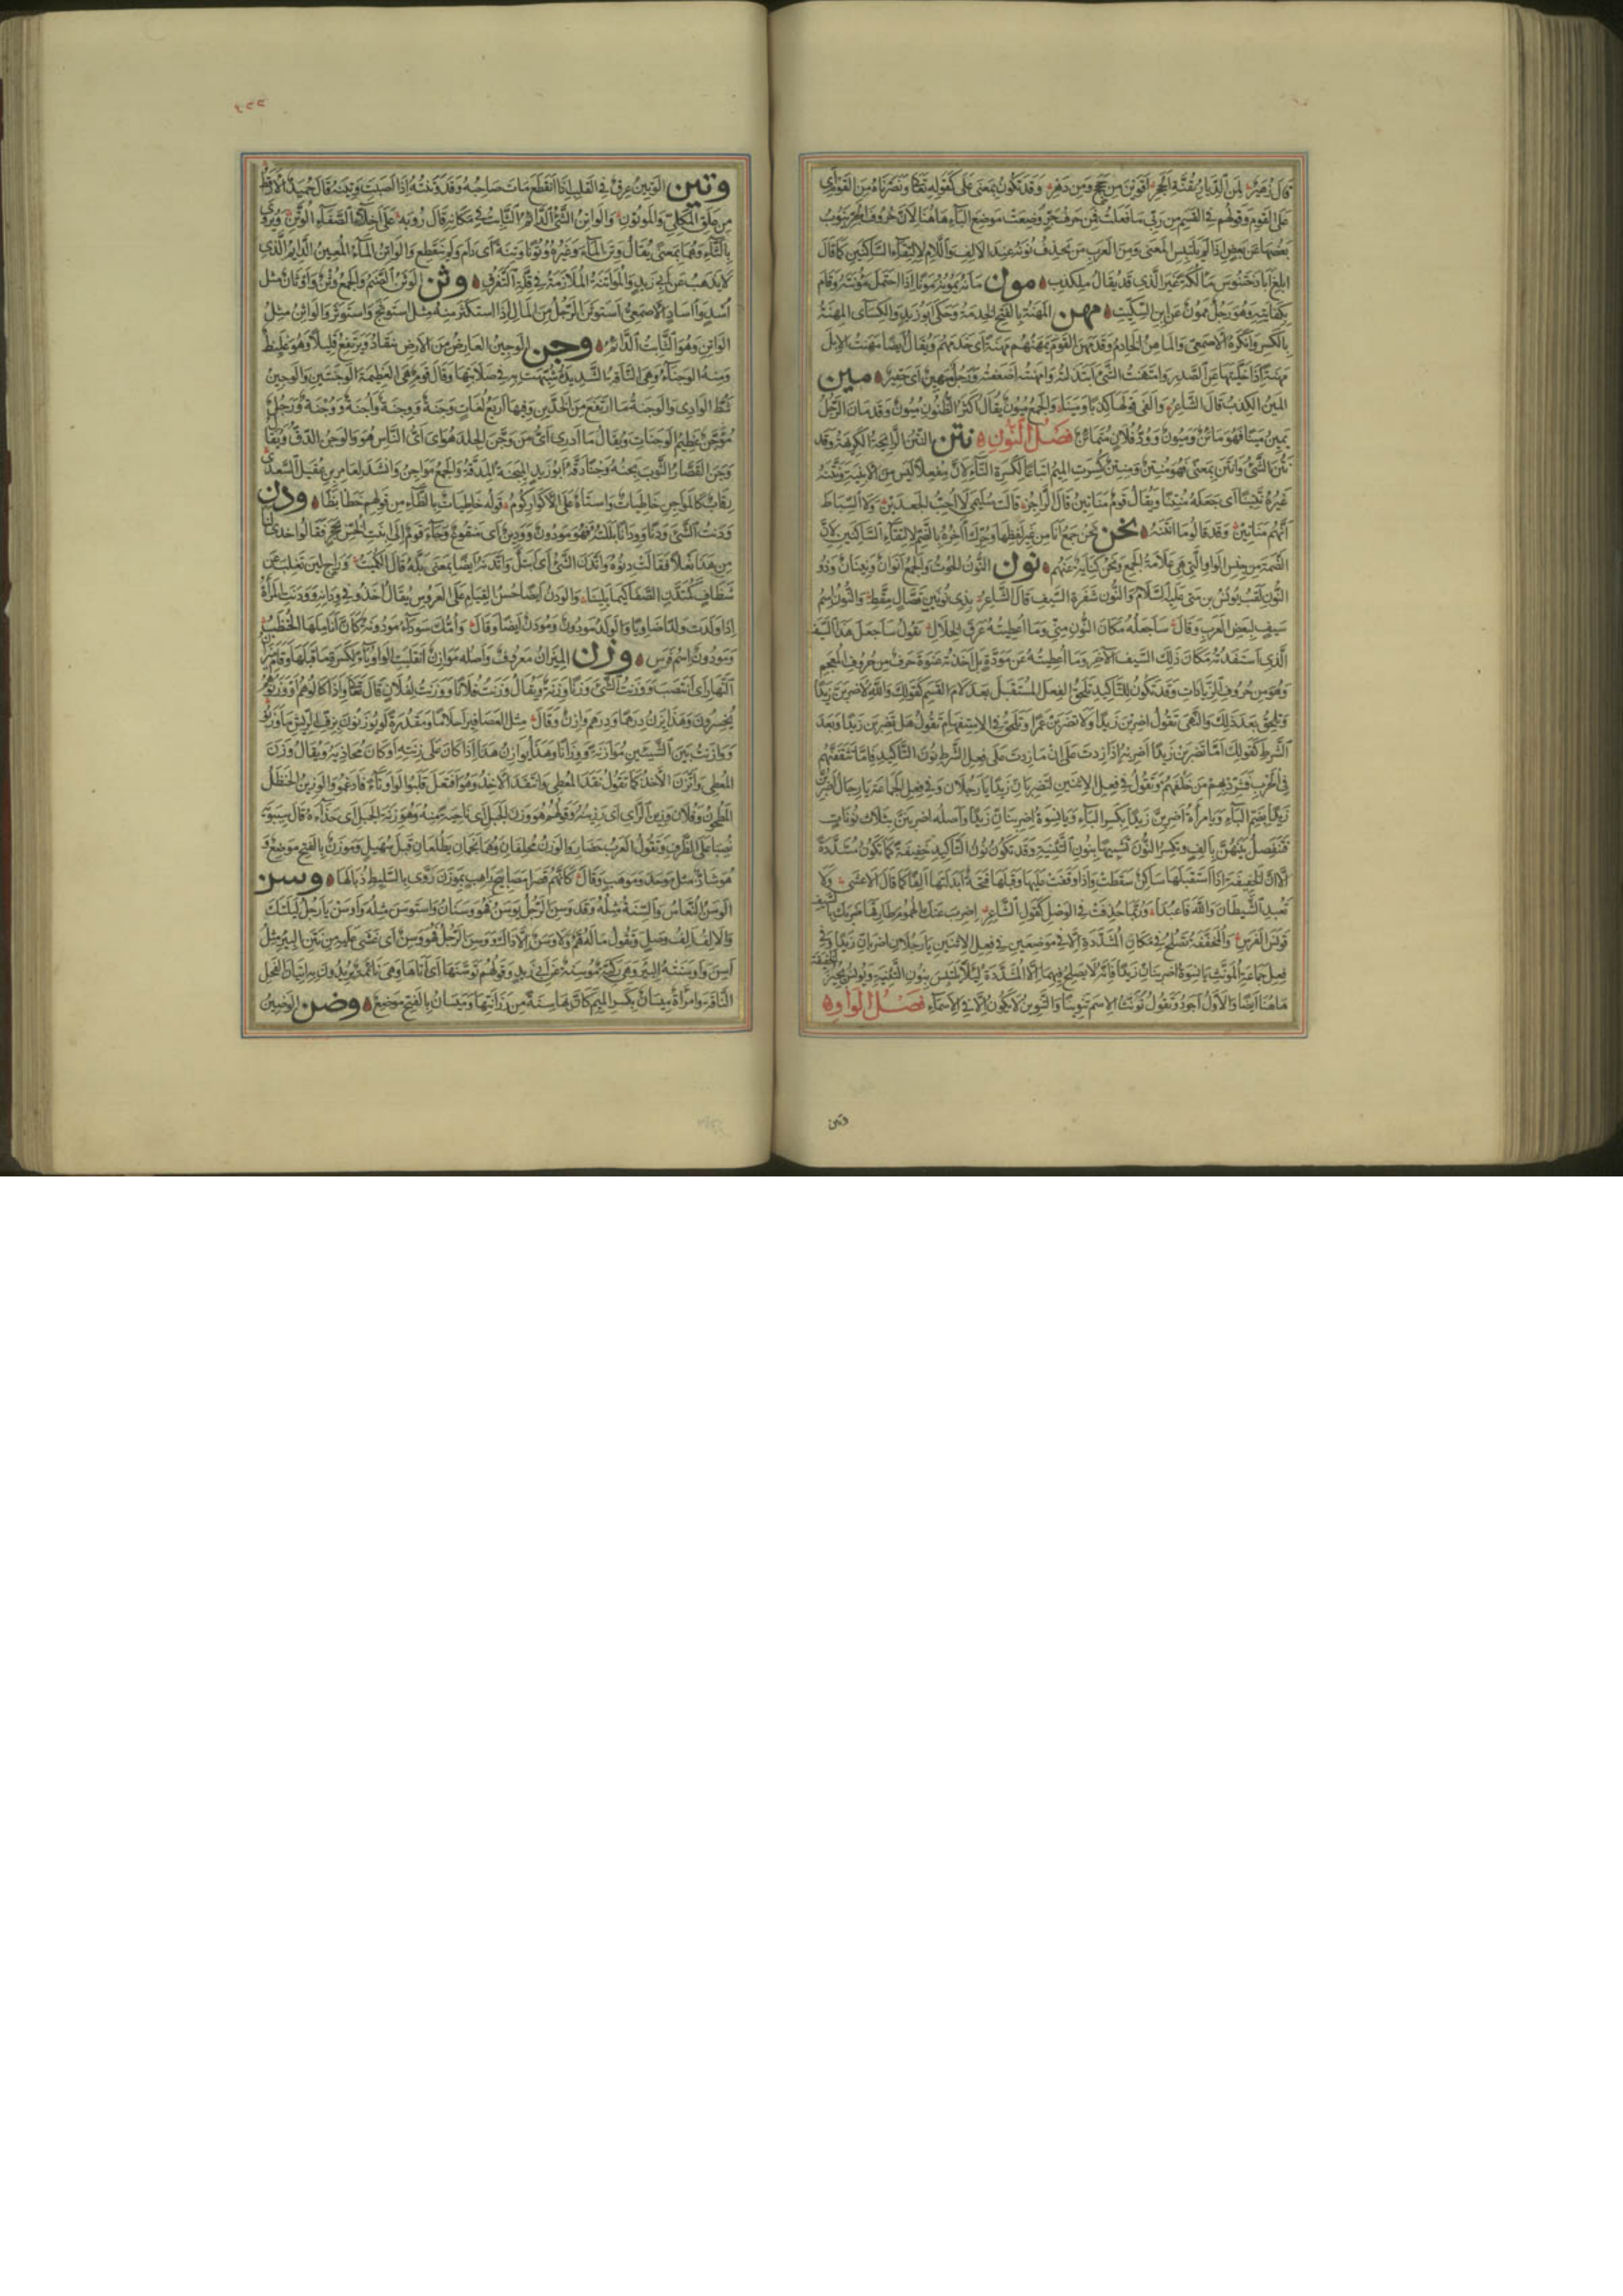 قال زهير لمن الديار بقنة الحجر اقوين من حجج ومن دهر وقد تكون بمعنى على كقوله تعالى ونصرناه من القوم أي
على القوم وقولهم في القسم من ربي ما فعلت فمن حرف جر وضعت موضع الباء هاهنا لان حروف الجر ينوب
بعضها عن بعض اذا لم يلتبس المعنى ومن العرب من يحذف نونه عند الالف واللام لالتقاء الساكنين كما قال
ابلغ ابا دختنوس مألكة غير الذي قد يقال ملكذب مون مانه يمونه مونا اذا احتمل مؤنته وقام
بكفايته وهو رجل ممون عن ابن السكيت مهن المهنة بالفتح الخدمة وحكى ابو زيد والكسائي المهنة
بالكسر وانكره الاصمعي والماهن الخادم وقد مهن القوم يمهنهم مهنة اى خدمهم ويقال ايضا مهنت الابل
مهنة اذا حلبتها عن الصدر وامتهنت الشئ ابتذلته وامهنته اضعفته ورجل مهين اى حقير مين
المين الكذب قال الشاعر والفى قولها كذبا ومينا والجمع ميون يقال اكثر الظنون ميون وقد مان الرجل
يمين مينا فهو مائن وميون وود فلان متماين فصل النون نتن النتن الرائحة الكريهة وقد
نتن الشئ وانتن بمعنى فهو منتن ومنتن كسرت الميم اتباعا لكسرة التاء لان مفعلا ليس من الابنية ونتنه
غيره تنتينا اى جعله منتنا ويقال قوم مناتين قال الراجز قالت سليمى لا احب الجعدين ولا السباط
انهم مناتين وقد قالوا ما انتنه نحن نحن جمع انا من غير لفظها وحرك آخره بالضم لالتقاء الساكنين لان
الضمة من جنس الواو التي هي علامة الجمع ونحن كناية عنهم نون النون الحوت والجمع انوان ونينان وذو
النون لقب يونس بن متى عليه السلام والنون شفرة السيف قال الشاعر بذى نونين فصال مقط والنون اسم
سيف لبعض العرب وقال ساجعله مكان النون منى وما اعطيته عرق الخلال يقول ساجعل هذا السيف
الذى استفدته مكان ذلك السيف الآخر وما اعطيته عن مودة بل اخذته عنوة والنون حرف من حروف المعجم
وهو من حروف الزيادات وقد تكون للتاكيد تلحق الفعل المستقبل بعد لام القسم كقولك والله لاضربن زيدا
وتلحق بعد ذلك والنهى تقول اضربن زيدا ولا تضربن عمرا وتلحق في الاستفهام تقول هل تضربن زيدا وبعد
الشرط كقولك اما تضربن زيدا اضربه اذا زدت على ان ما زدت على فعل الشرط نون التاكيد فاما تثقفنهم
في الحرب فشرد بهم من خلفهم وتقول في فعل الاثنين لتضربان زيدا يا رجلان وفي فعل الجماعة يا رجال اضربن
زيدا بضم الباء ويا امرأة اضربن زيدا بكسر الباء ويا نسوة اضربنان زيدا واصله اضربنن بثلاث نونات
فتفصل بينهن بالف وتكسر النون تشبيها بنون التثنية وقد تكون نون التاكيد خفيفة كما تكون مشددة
الا ان الخفيفة اذا استقبلها ساكن سقطت واذا وقفت عليها وقبلها فتحة ابدلتها الفا كما قال الاعشى ولا
تعبد الشيطان والله فاعبدا وربما حذفت في الوصل كقول الشاعر اضرب عنك الهموم طارقها ضربك بالسيف
قونس الفرس والمخففة تصلح في مكان المشددة الا في موضعين في فعل الاثنين يا رجلان اضربان زيدا وفي
فعل جماعة المؤنث يا نسوة اضربنان زيدا فانه لا يصلح فيهما الا المشددة لئلا يلتبس بنون التثنية ويونس يجيز الخفيفة
هاهنا ايضا والاول اجود وتقول نونت الاسم تنوينا والتنوين لا يكون الا في الاسماء فصل الواو
وتين
وتين الوتين عرق في القلب اذا انقطع مات صاحبه وقد وتنته اذا اصبت وتينه قال حميد الارقط
من علق المكلي والموتون والواتن الشئ الدائم الثابت في مكانه قال رؤبة على اخلاء الصفاء الوتن ويروى
بالثاء وهما بمعنى يقال وتن الماء وغيره وتونا وتنة اى دام ولم ينقطع والواتن الماء المعين الدايم الذى
لا يذهب عن ابى زيد والمواتنة الملازمة في قلة التفرق وثن الوثن الصنم والجمع وثن واوثان مثل
اسد وآساد الاصمعي استوثن الرجل من المال اذا استكثر منه مثل استوثج واستوثر والواثن مثل
الواتن وهو الثابت الدائم وجن الوجين العارض من الارض ينقاد ويرتفع قليلا وهو غليظ
ومنه الوجناء وهي الناقة الشديدة شبهت به في صلابتها وقال قوم هي العظيمة الوجنتين والوجين
شط الوادى والوجنة ما ارتفع من الخدين وفيها اربع لغات وجنة ووجنة واجنة ووجنة ورجل
موجن عظيم الوجنات ويقال ما ادرى اى من وجن الجلد هو اى اى الناس هو والوجن الدق ويقال
وجن القصار الثوب يجنه وجنا دقه ابو زيد الميجنة المدقة والجمع مواجن وانشد لعامر بن عقيل السعدى
رقاب كالمواجن خاظيات واستاه على الاكوار كوم قوله خاظيات بالظاء من قولهم خظا بظا ودن
ودنت الشئ ودنا وودانا بللته فهو مودون وودين اى منقوع وجاء قوم الى بنت الخس بحجر فقالوا احذى لنا
من هذا نعلا فقالت دنوه واتدن الشئ اى ابتل واتدنه ايضا بمعنى بله قال الكميت وراج لين تغلب عن
شظاف كمتدن الصفا كيما يلينا والودن ايضا حسن القيام على العروس يقال اخذوا في ودانه وودنت المرأة
اذا ولدت ولدا ضاويا والولد مودون ومودن ايضا وقال وامك سوداء مودونة كان اناملها الحنظب
ومودون اسم فرس وزن الميزان معروف واصله موازن انقلبت الواو ياء لكسرة ما قبلها وقام ميزان
النهار اى انتصب ووزنت الشئ وزنا وزنة ويقال وزنت فلانا ووزنت لفلان قال تعالى واذا كالوهم او وزنوهم
يخسرون وهذا يزن درهما ودرهم وازن وقال مثل العصافير احلاما ومقدرة لو يوزنون بزف الريش ما وزنوا
ووازنت بين الشيئين موازنة ووزانا وهذا يوازن هذا اذا كان على زنته او كان محاذيه ويقال وزن
المعطى واتزن الاخذ كما تقول نقد المعطى وانتقد الآخذ وهو افتعل قلبوا الواو تاء فادغموا والوزين الحنظل
المطحون وفلان وزين الراى اى رزينه وقولهم هو وزن الجبل اى ناحية منه وهو زنة الجبل اى حذاءه قال سيبويه
نصبا على الظرف وتقول العرب حضار والوزن محلفان وهما نجمان يطلعان قبل سهيل وموزن بالفتح موضع و
هو شاذ مثل موحد وموهب وقال كانهم قصرا مصابيح راهب بموزن روى بالسليط ذبالها وسن
الوسن النعاس والسنة مثله وقد وسن الرجل يوسن فهو وسنان واستوسن مثله واوسن يا رجل ليلتك
والالف الف وصل وتقول ما له هم ولا وسن الا ذاك ووسن الرجل فهو وسن اى غشى عليه من نتن البير مثل
اسن واوسنته البير وهي ركية موسنة عن ابى زيد وقولهم توسنها اى اتاها وهي نائمة يريدون به اتيان الفحل
الناقة وامرأة ميسان بكسر الميم كان بها سنة من رزانتها وميسان بالفتح موضع وضن الوضين